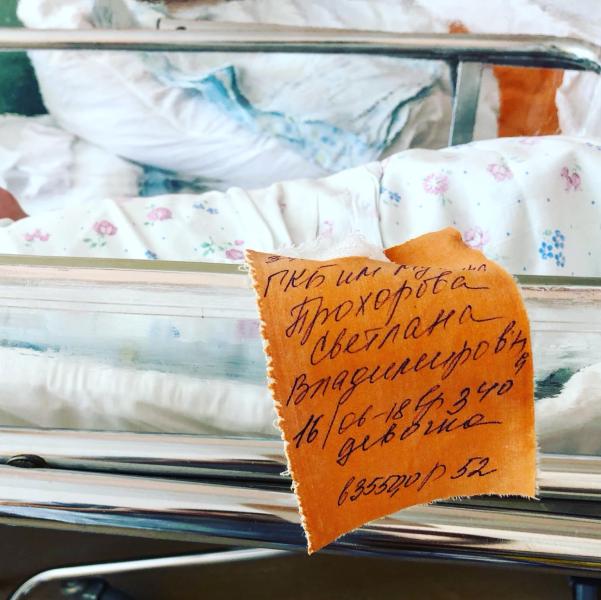 ГКБ им
Прохорова
Светлана
Владимировна
16/06-18 Вр 3 40
девочка
в3550,0 р 52